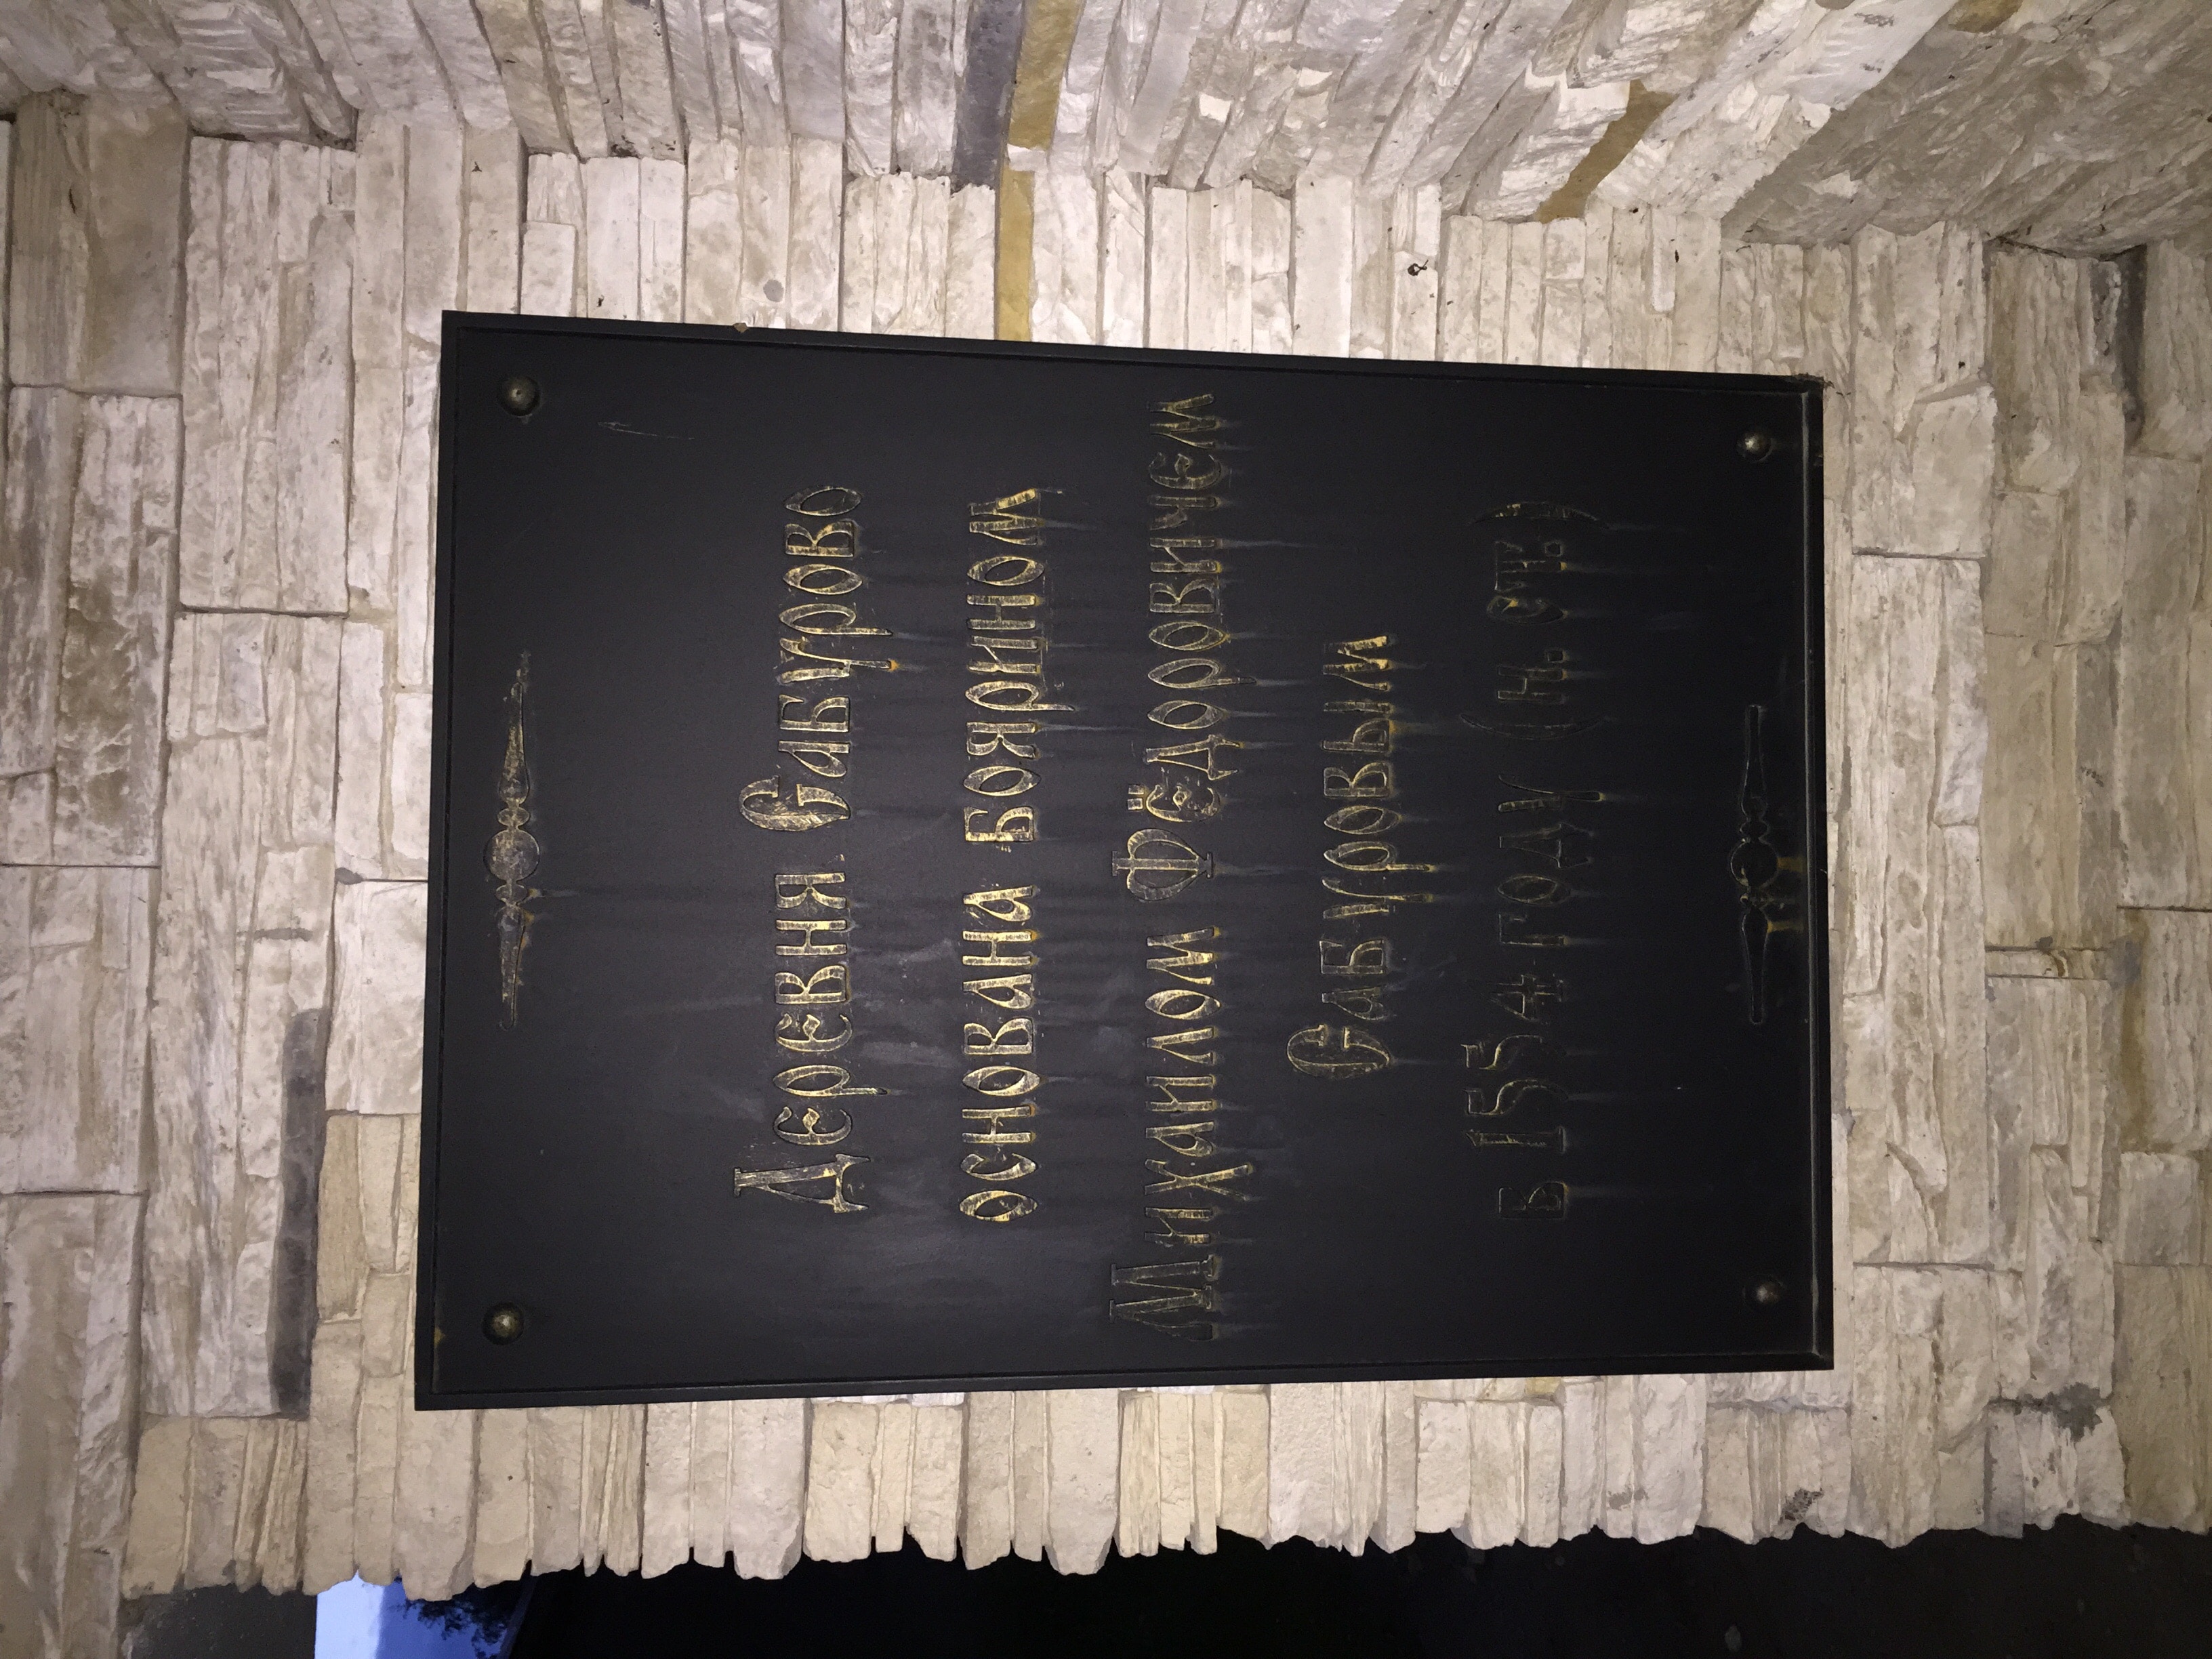 Деревня Сабурово
основана боярином
Михаилом Фёдоровичем
Сабуровым
в 1554 году (н. ст.)